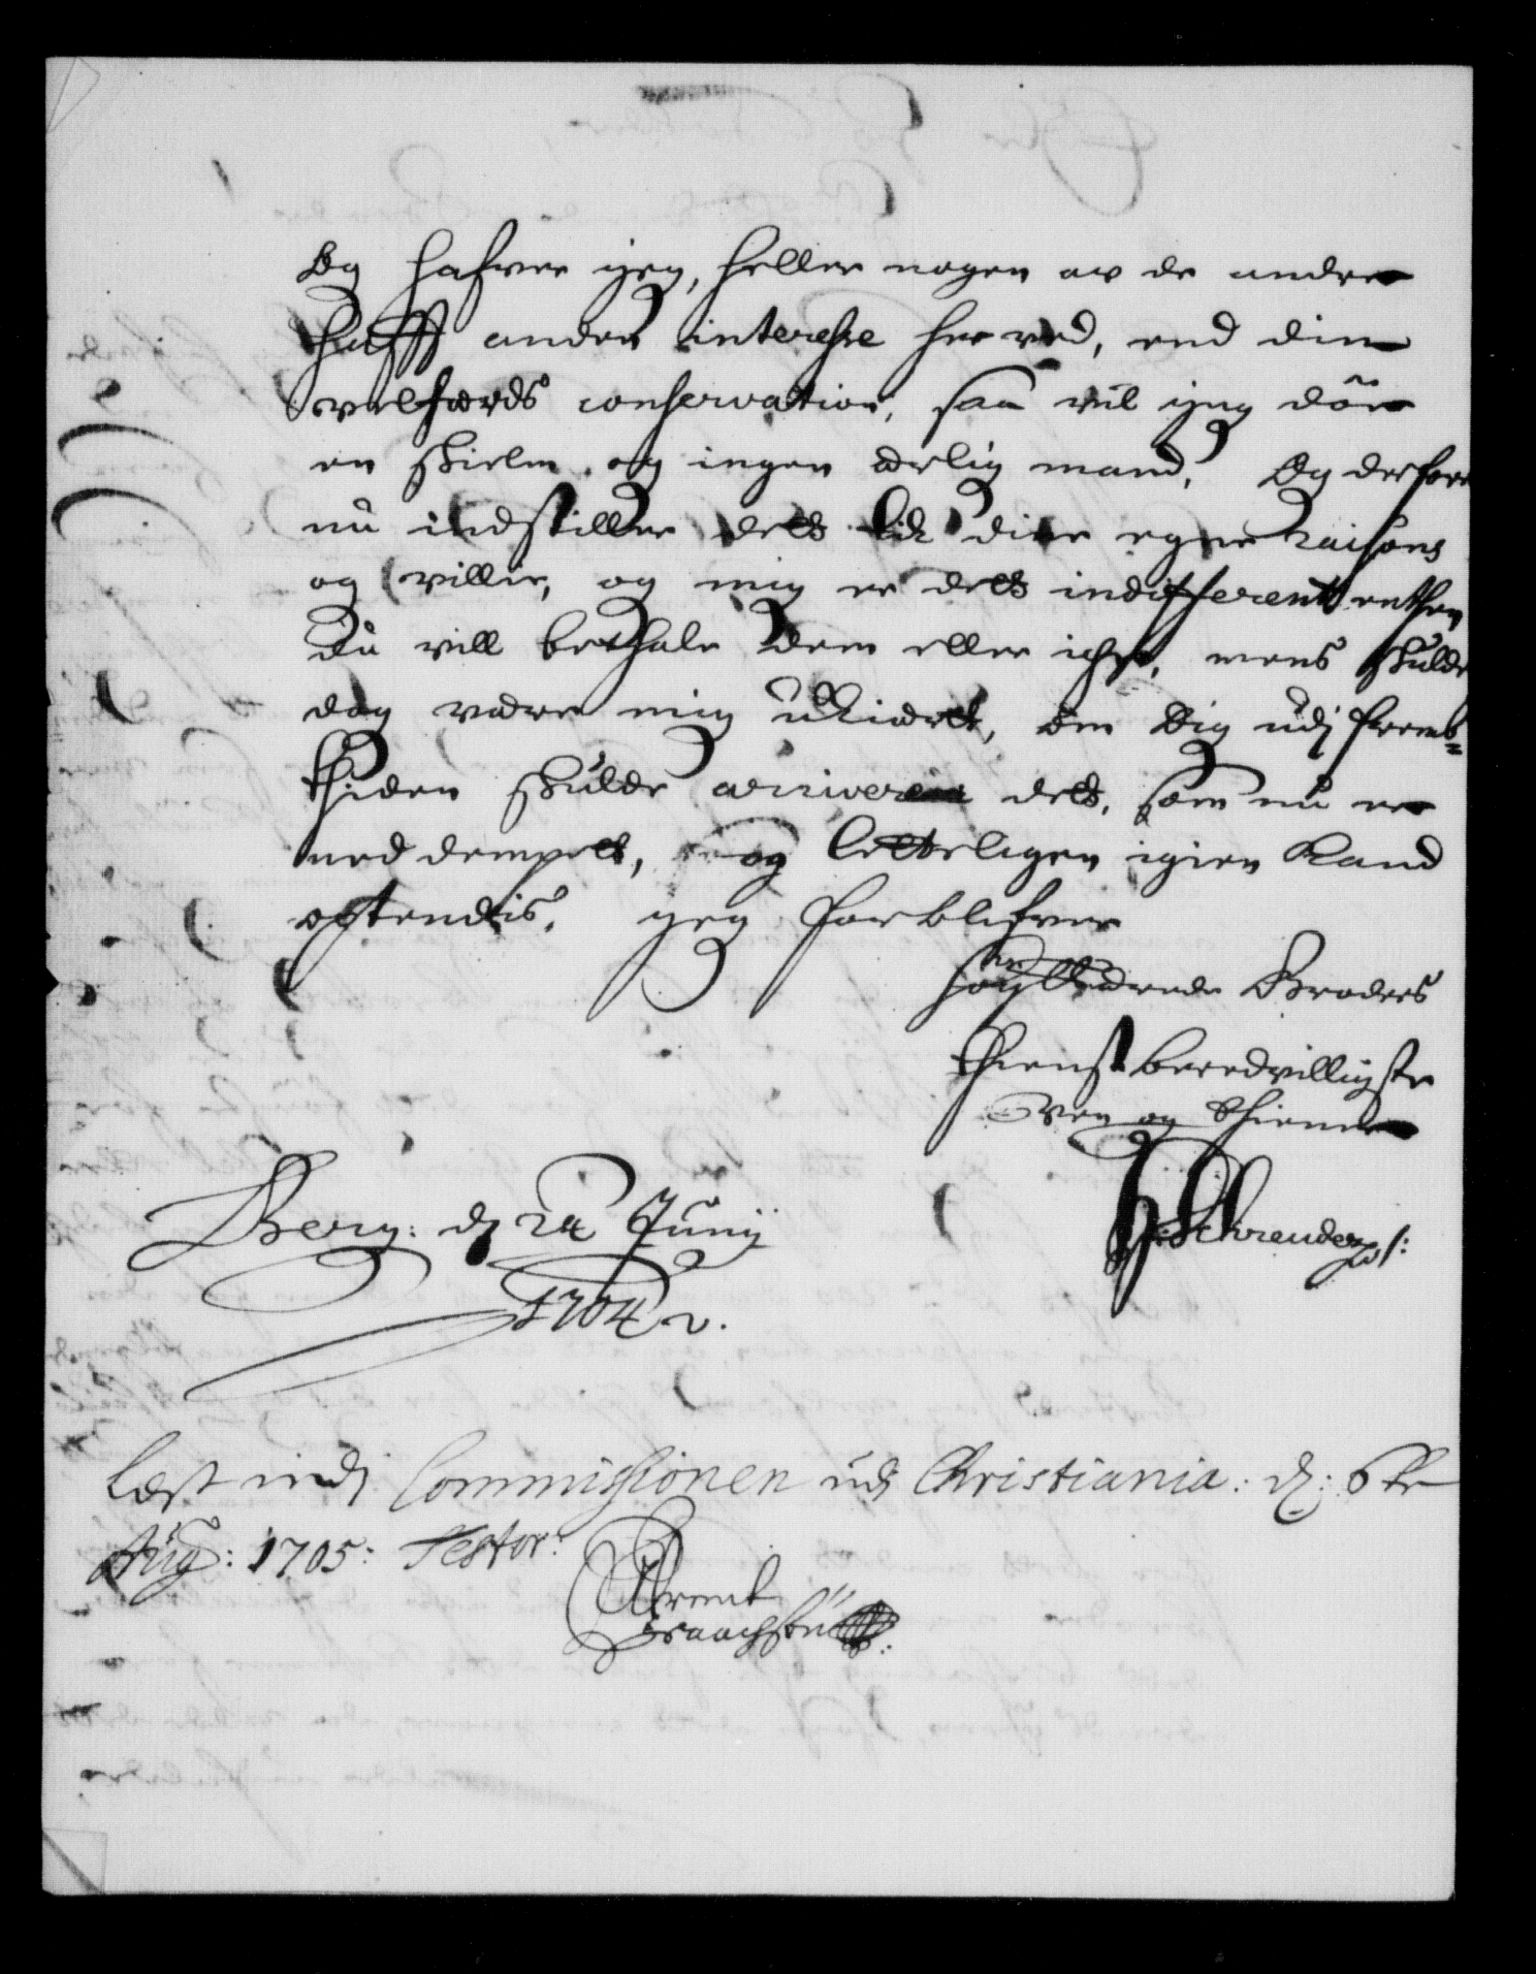 Og hafver jeg, heller nogen av de andre
hafft anden interesse her ved, end din
velfærds conservation, saa vil jeg döe
en skielm og ingen ærlig mand, Og derfore
nu indstiller dett till dine egne raisons
og villie, og mig er dett indifferent enthen
du vill bethale dem eller iche, mens skulde
dog være mig ukiært, om Dig udj fremb=
thiden skulde arrivere dett, som nu er
ned dempett, og letteligen igien kand
optendis. jeg forblifver
Höybædrede Broders
thienstberedvilligste
Ven og thiener
Schreuder
Berg: dj 24 Junij
1704.
Læst indj Commissionen udj Christiania: d: 6te
Aug: 1705: Testor:
Arent